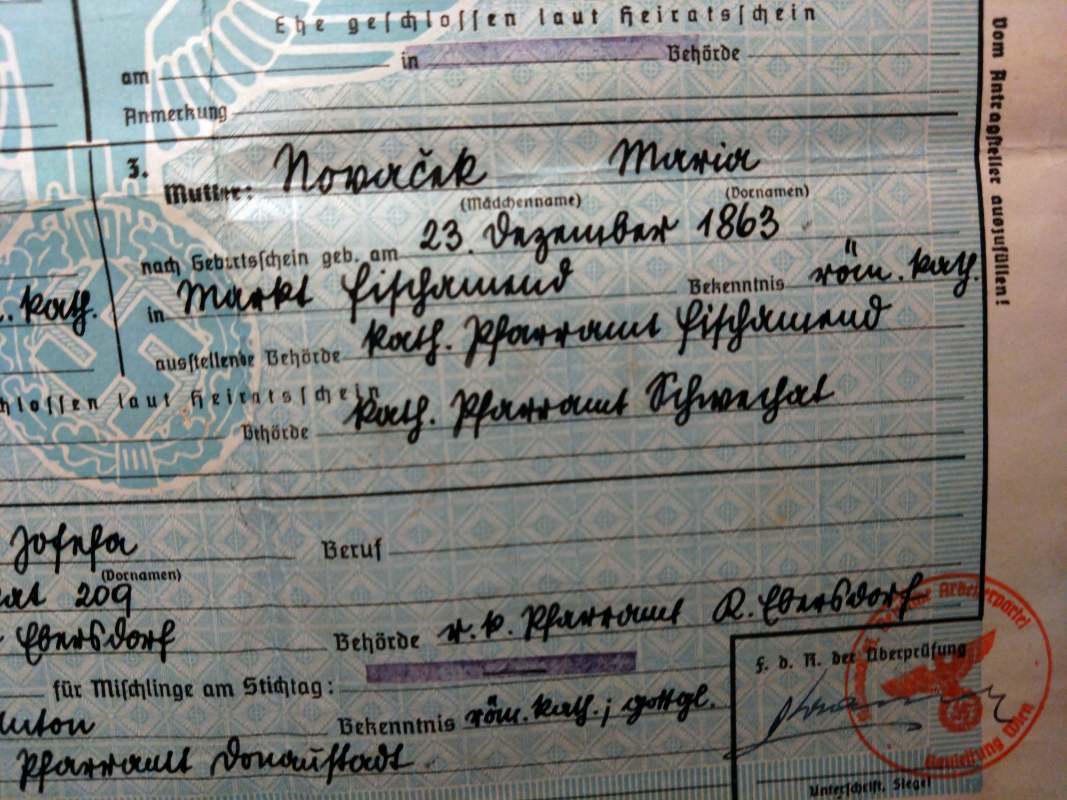 Ehe geschlossen laut Heiratsschein
am in Behörde
Anmerkung
3.
Mutter: Novaček Maria
(Mädchenname) (Vornamen)
nach Geburtsschein geb. am 23. Dezember 1863
.. kath. in Markt Fischamend Bekenntnis röm. kath.
ausstellende Behörde kath. Pfarramt Fischamend
chlossen laut Heiratsschein
Behörde kath. Pfarramt Schwechat
Josefa Beruf
(Vornamen)
at 209
Ebersdorf Behörde r. k. Pfarramt K. Ebersdorf
für Mischlinge am Stichtag:
nton Bekenntnis röm. kath.; gottgl.
Pfarramt Donaustadt
F. d. R. der Überprüfung
Arbeiterpartei
Wien
Unterschrift, Siegel
Vom Antragsteller auszufüllen!